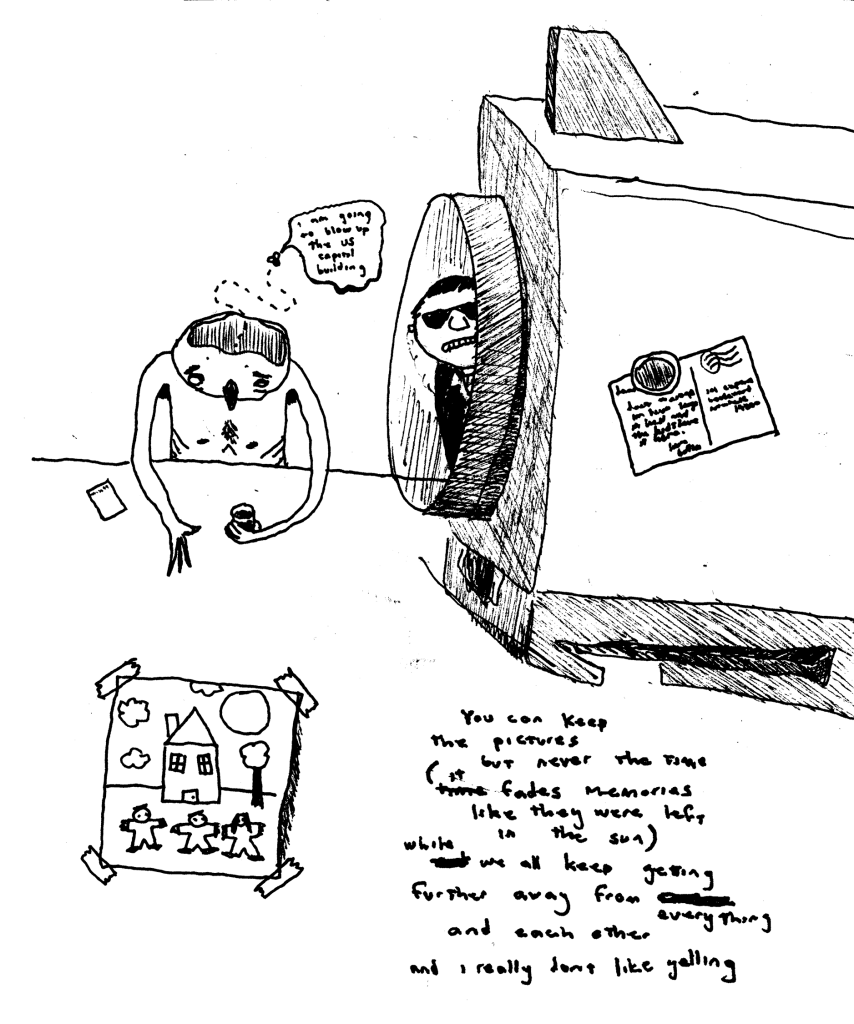 i am going
to blow up
the US
capitol
building
You can keep
the pictures
but never the time
(it fades memories
like they were left
in the sun)
while we all keep getting
further away from
everything
and each other
and i really dont like yelling